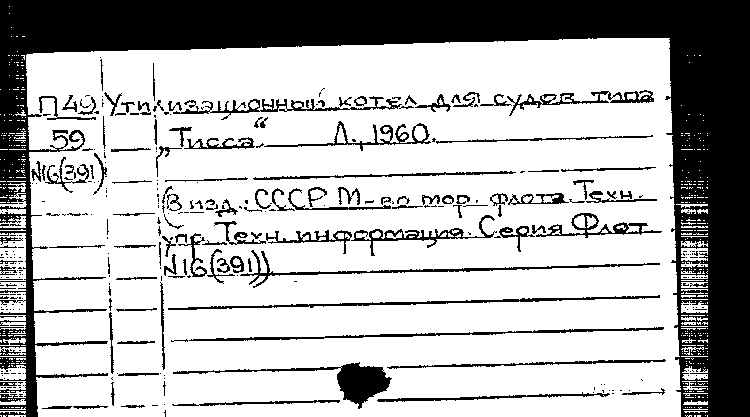 П49 Утилизационный котел для судов типа
59 „Тисса“ Л., 1960.
N16(391)
(В изд.: СССР. М-во мор. флота. Техн.
упр. Техн. информация. Серия Флот
N16(391))